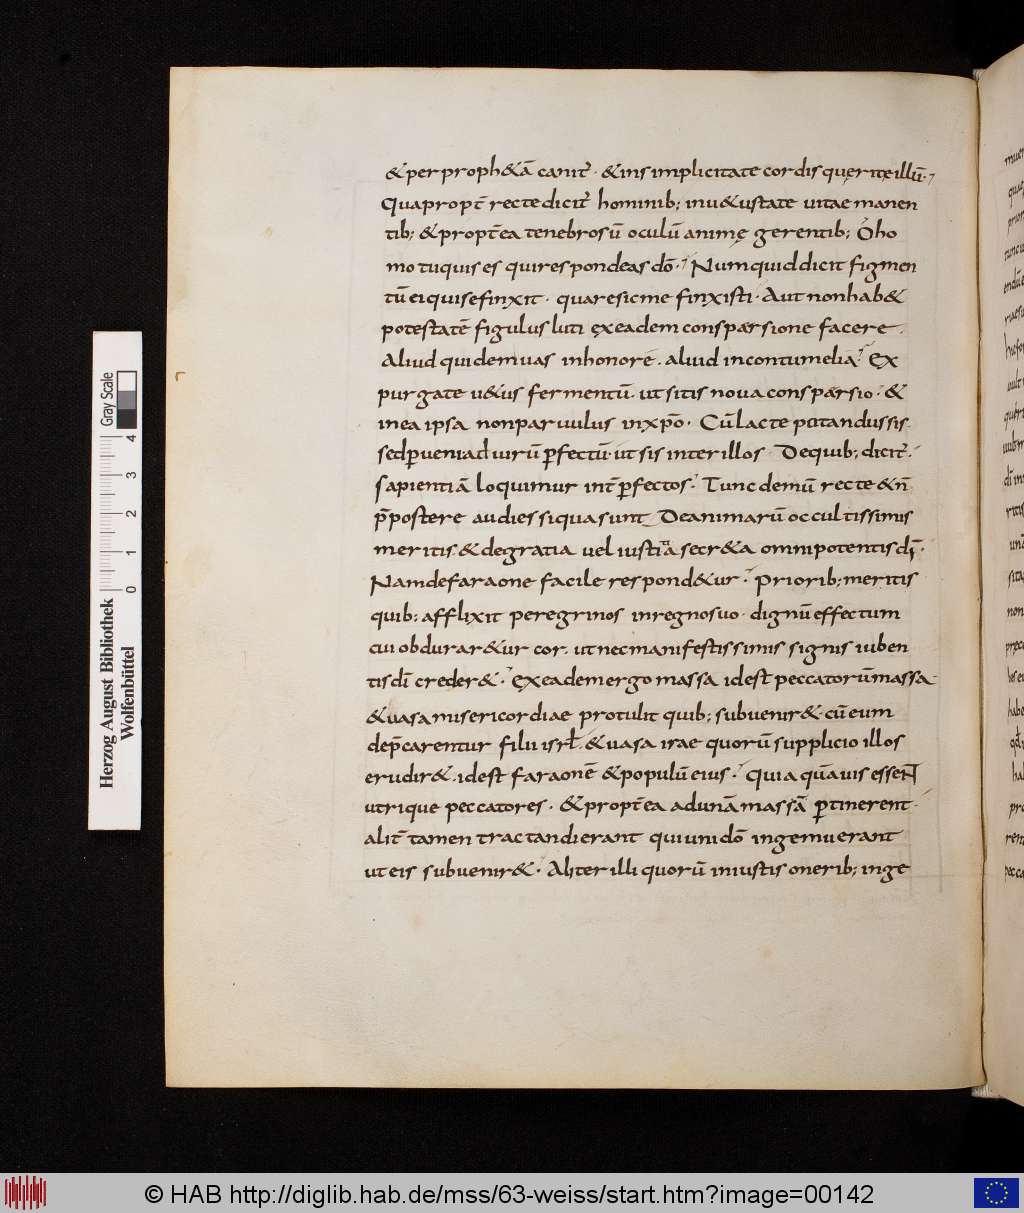 &per proph&ā canit᷑ · &insimplicitate cordis querite illū·
Quapropt̄ recte dicit᷑ hominib; inu&ustate uitae manen
tib; &propt̄ea tenebrosū oculū animę gerentib; O ho
mo tu quis es qui respondeas dō · Numquid dicit figmen
tū ei qui se finxit · quare sic me finxisti · Aut non hab&
potestatē figulus luti ex eadem consparsione facere ·
Aliud quidem uas inhonore · aliud incontumeliā · Ex
purgate u&us fermentū · ut sitis noua consparsio · &
inea ipsa non paruulus inxpō · Cū lacte potandus sis
sed ꝑueni ad uirū ꝑfectū · ut sis inter illos · Dequib; dicit᷑ ·
sapientiā loquimur int̄ ꝑfectos · Tunc demū recte &n̄
p̄postere audies siqua sunt Deanimarū occultissimis
meritis · &degratia uel iustitia secr&a omnipotentis dī ·
Nam defaraone facile respond&ur · Priorib; meritis
quib; afflixit peregrinos inregno suo · dignū effectum
cui obdurar&ur cor · ut nec manifestissimis signis iuben
tis dī creder& · Ex eadem ergo massa idest peccatorū massa
&uasa misericordiae protulit quib; subuenir& cū eum
dep̄carentur filii isrł · &uasa irae quorū supplicio illos
erudir& · idest faraonē &populū eius · Quia quāuis essent
utrique peccatores · &propt̄ea ad unā massā ꝑtinerent ·
alit̄ tamen tractandi erant qui uni dō ingemuerant
ut eis subuenir& · Aliter illi quorū iniustis onerib; inge
Herzog August Bibliothek
Wolfenbüttel
0 1 2 3 4
Gray Scale
© HAB http://diglib.hab.de/mss/63-weiss/start.htm?image=00142